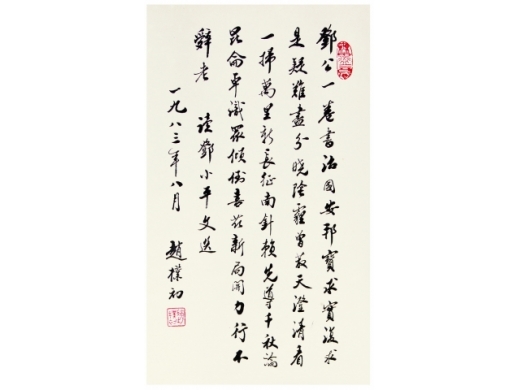 鄧公一卷書治國安邦寶求實復求
是疑難盡分曉陰霾曾蔽天澄清看
一掃萬里新長征南針賴先導千秋論
昆侖卓識眾傾倒喜茲新局開力行不
辭老 讀鄧小平文選
一九八三年八月 趙樸初